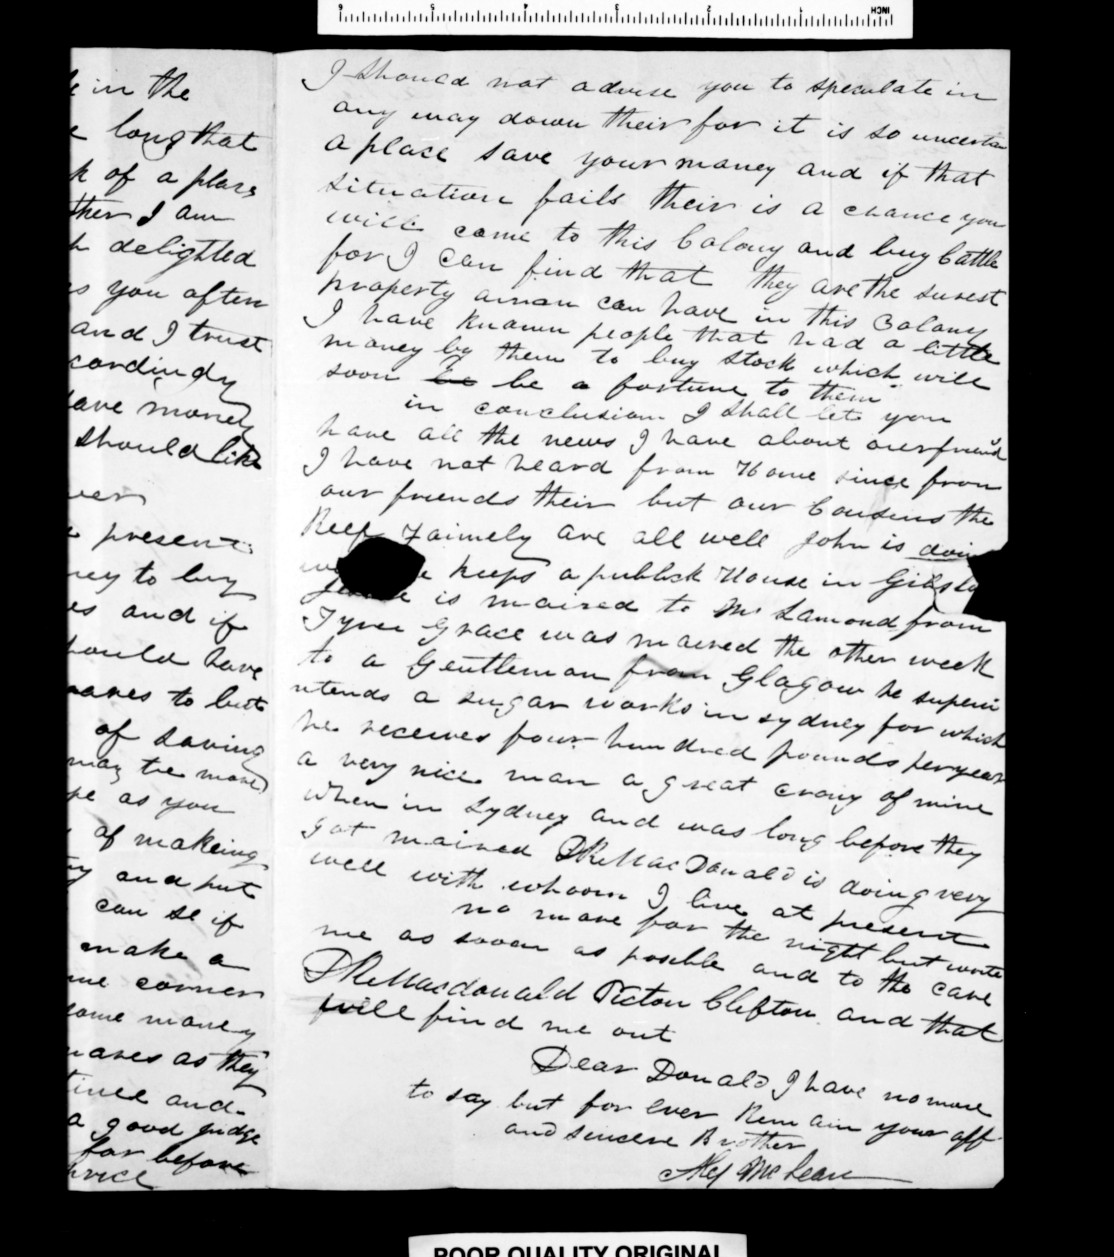 in the
long that
of a place
ther I am
delighted
s you often
and I trust
cordindy
ave money
should like
ver
present
ney to buy
es and if
hould have
mares to but
of saving
may be more
pe as you
of makeing
ty and put
can se if
make a
me corner
some money
mares as they
time and
a good judge
far before
I should not advise you to speculate in
any way down their for it is so uncerta
a place save your money and if that
situation fails their is a chance you
will come to this Colony and buy Cattle
for I can find that they are the surest
property aman can have in this Colony
I have known people that had a little
money by them to buy stock which will
soon be be a fortune to them
in conclusion I shall let you
have all the news I have about our friend
I have not heard from Home since from
our friends their but our Cousins the
Reef Faimely are all well John is doin
keeps a publick House in Gibslan
is maired to Mr Lamond from
Tyree Grace was maired the other week
to a Gentleman from Glagow he superin
ntends a sugar works in sydney for which
he receives four hundred pounds per year
a very nice man a great crony of mine
when in Sydney and was long before they
got maired D R MacDonald is doing very
well with whoom I live at present
no more for the night but write
me as soon as posible and to the care
D R Macdonald Picton Clifton and that
will find me out
Dear Donald I have no more
to say but for ever Remain your aff
and sincere Brother
Alex McLean
INCH
1
2
3
4
5
6
POOR QUALITY ORIGINAL